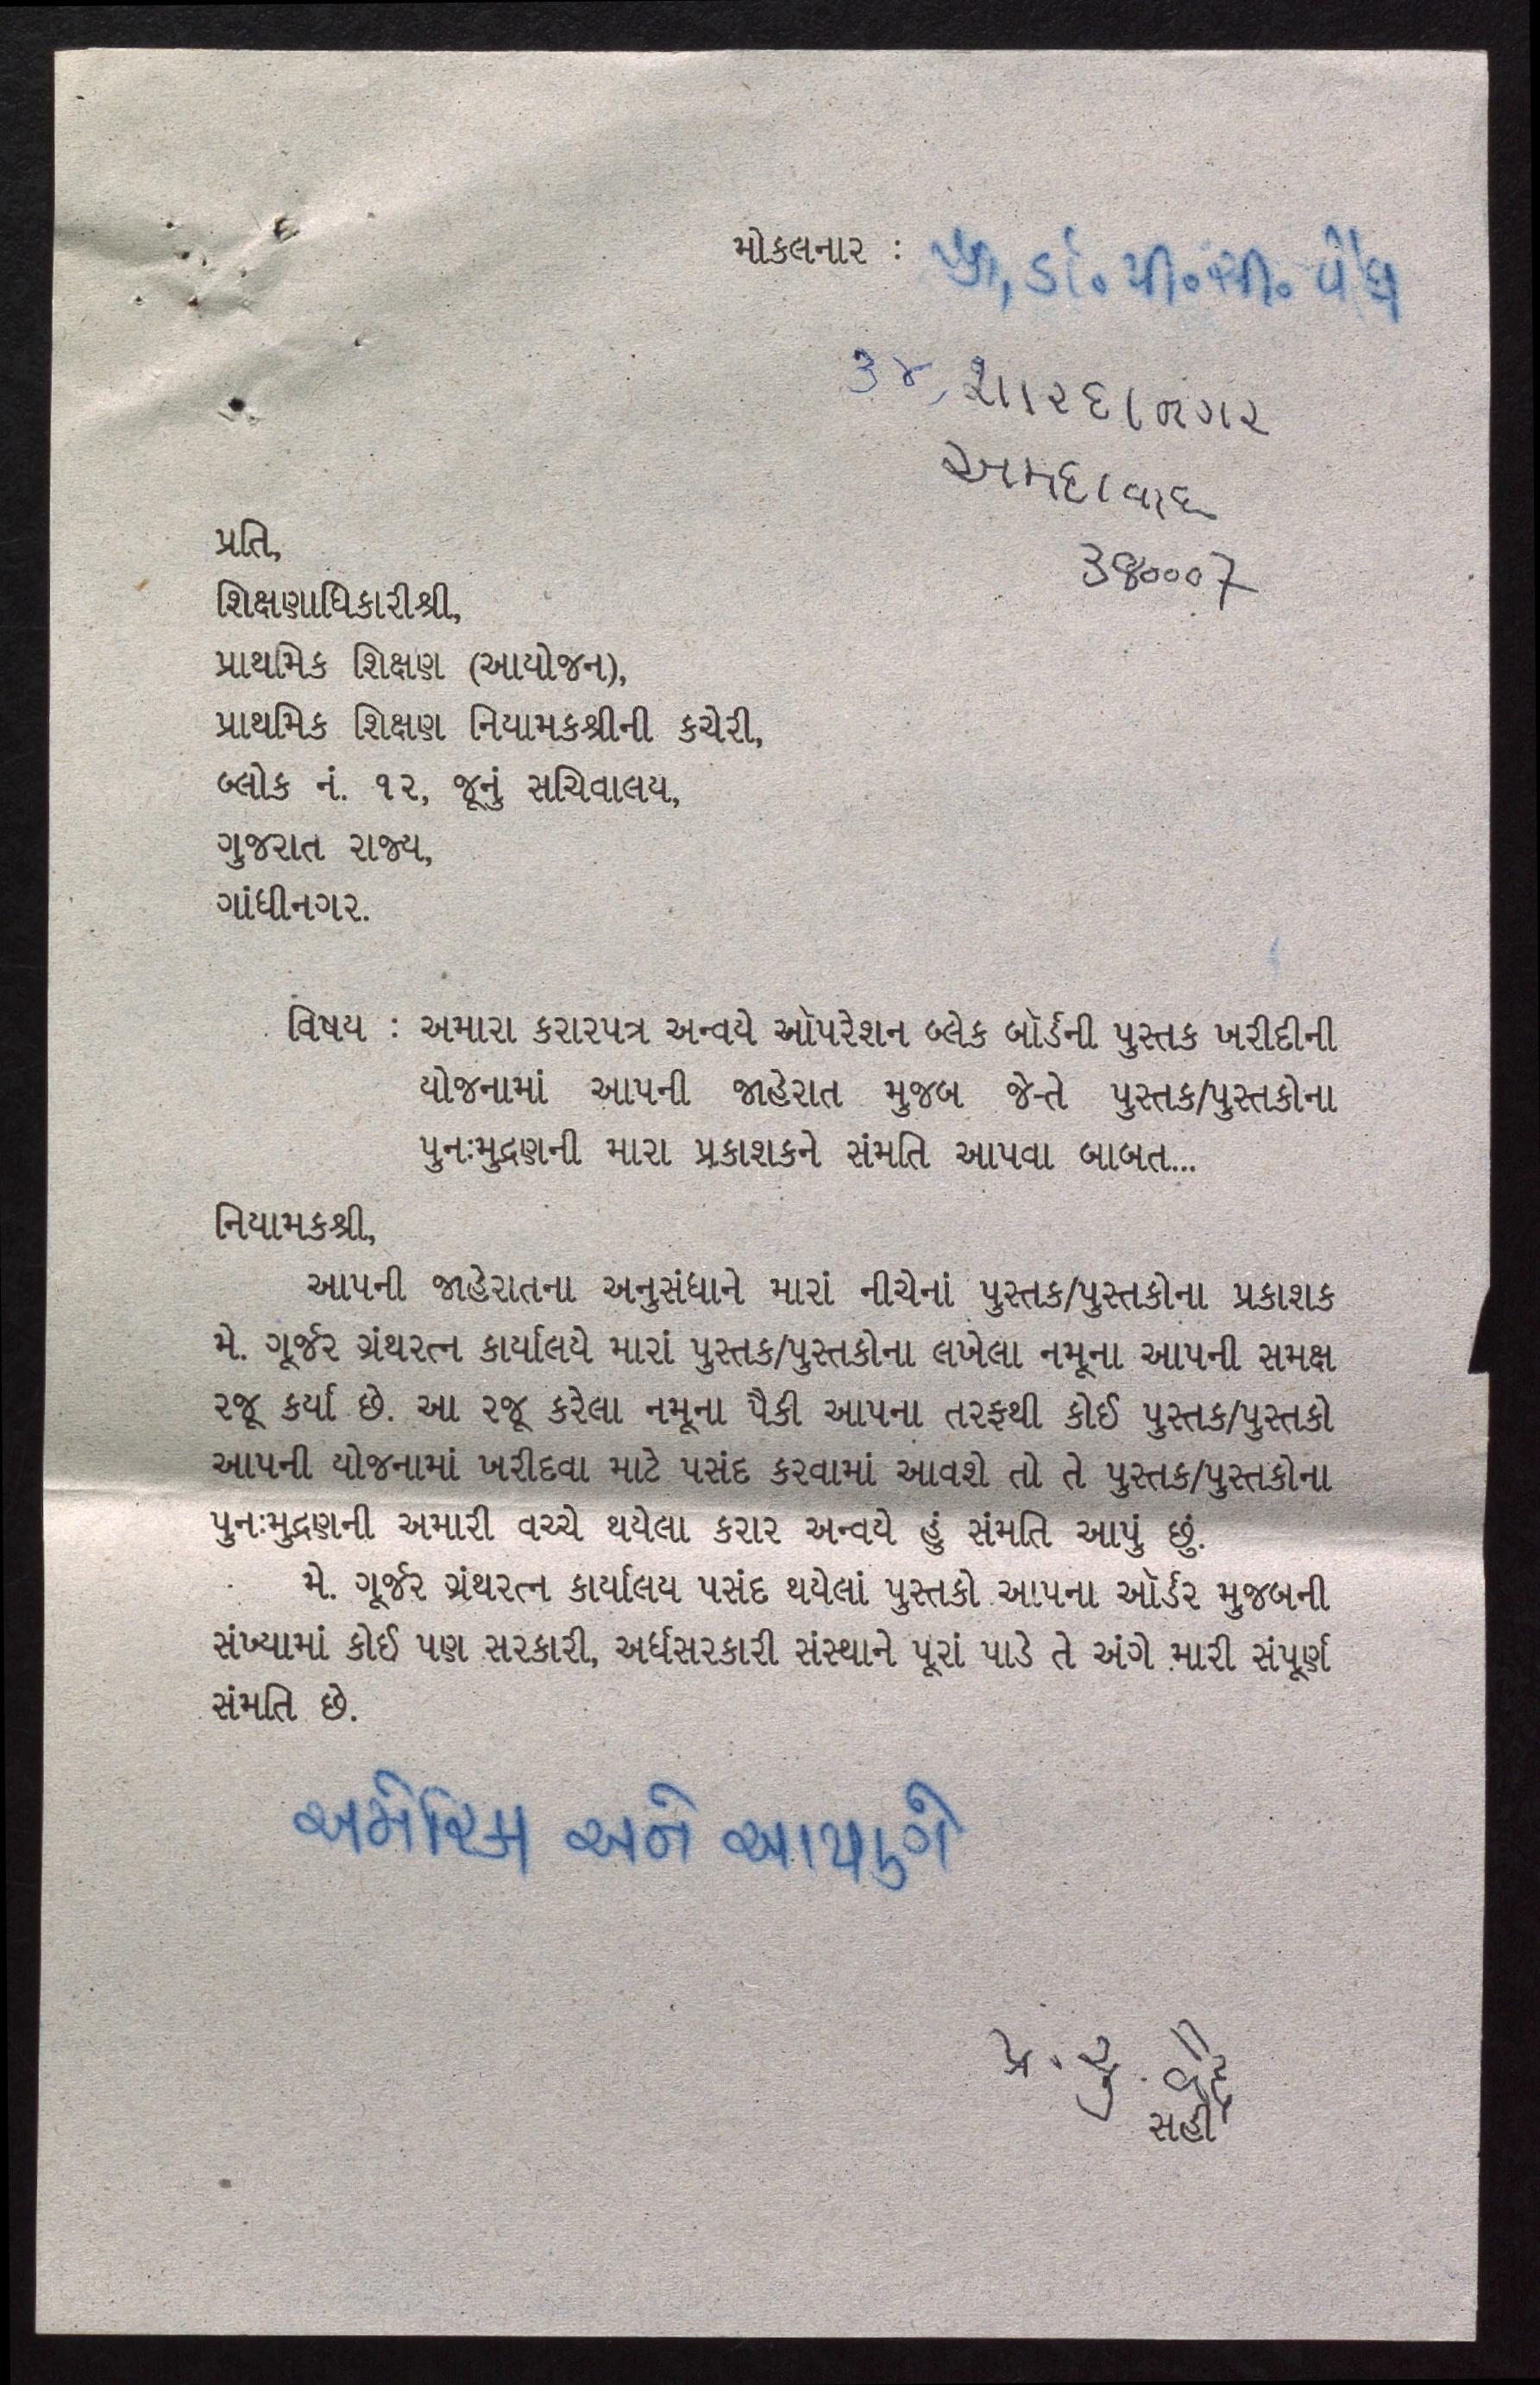 મોકલનાર : શ્રી, ડૉ. પી. સી. વૈદ્ય
૩૪, શારદાનગર
અમદાવાદ
380007
પ્રતિ,
શિક્ષણાધિકારીશ્રી,
પ્રાથમિક શિક્ષણ (આયોજન),
પ્રાથમિક શિક્ષણ નિયામકશ્રીની કચેરી,
બ્લોક નં. ૧૨, જૂનું સચિવાલય,
ગુજરાત રાજ્ય,
ગાંધીનગર.
વિષય : અમારા કરારપત્ર અન્વયે ઑપરેશન બ્લેક બૉર્ડની પુસ્તક ખરીદીની
યોજનામાં આપની જાહેરાત મુજબ જે-તે પુસ્તક/પુસ્તકોના
પુનઃમુદ્રણની મારા પ્રકાશકને સંમતિ આપવા બાબત...
નિયામકશ્રી,
આપની જાહેરાતના અનુસંધાને મારાં નીચેનાં પુસ્તક/પુસ્તકોના પ્રકાશક
મે. ગૂર્જર ગ્રંથરત્ન કાર્યાલયે મારાં પુસ્તક/પુસ્તકોના લખેલા નમૂના આપની સમક્ષ
રજૂ કર્યા છે. આ રજૂ કરેલા નમૂના પૈકી આપના તરફથી કોઈ પુસ્તક/પુસ્તકો
આપની યોજનામાં ખરીદવા માટે પસંદ કરવામાં આવશે તો તે પુસ્તક/પુસ્તકોના
પુનઃમુદ્રણની અમારી વચ્ચે થયેલા કરાર અન્વયે હું સંમતિ આપું છું.
મે. ગૂર્જર ગ્રંથરત્ન કાર્યાલય પસંદ થયેલાં પુસ્તકો આપના ઑર્ડર મુજબની
સંખ્યામાં કોઈ પણ સરકારી, અર્ધસરકારી સંસ્થાને પૂરાં પાડે તે અંગે મારી સંપૂર્ણ
સંમતિ છે.
અમેરિકા અને આપણે
પ્ર. ચુ. વૈદ્ય
સહી